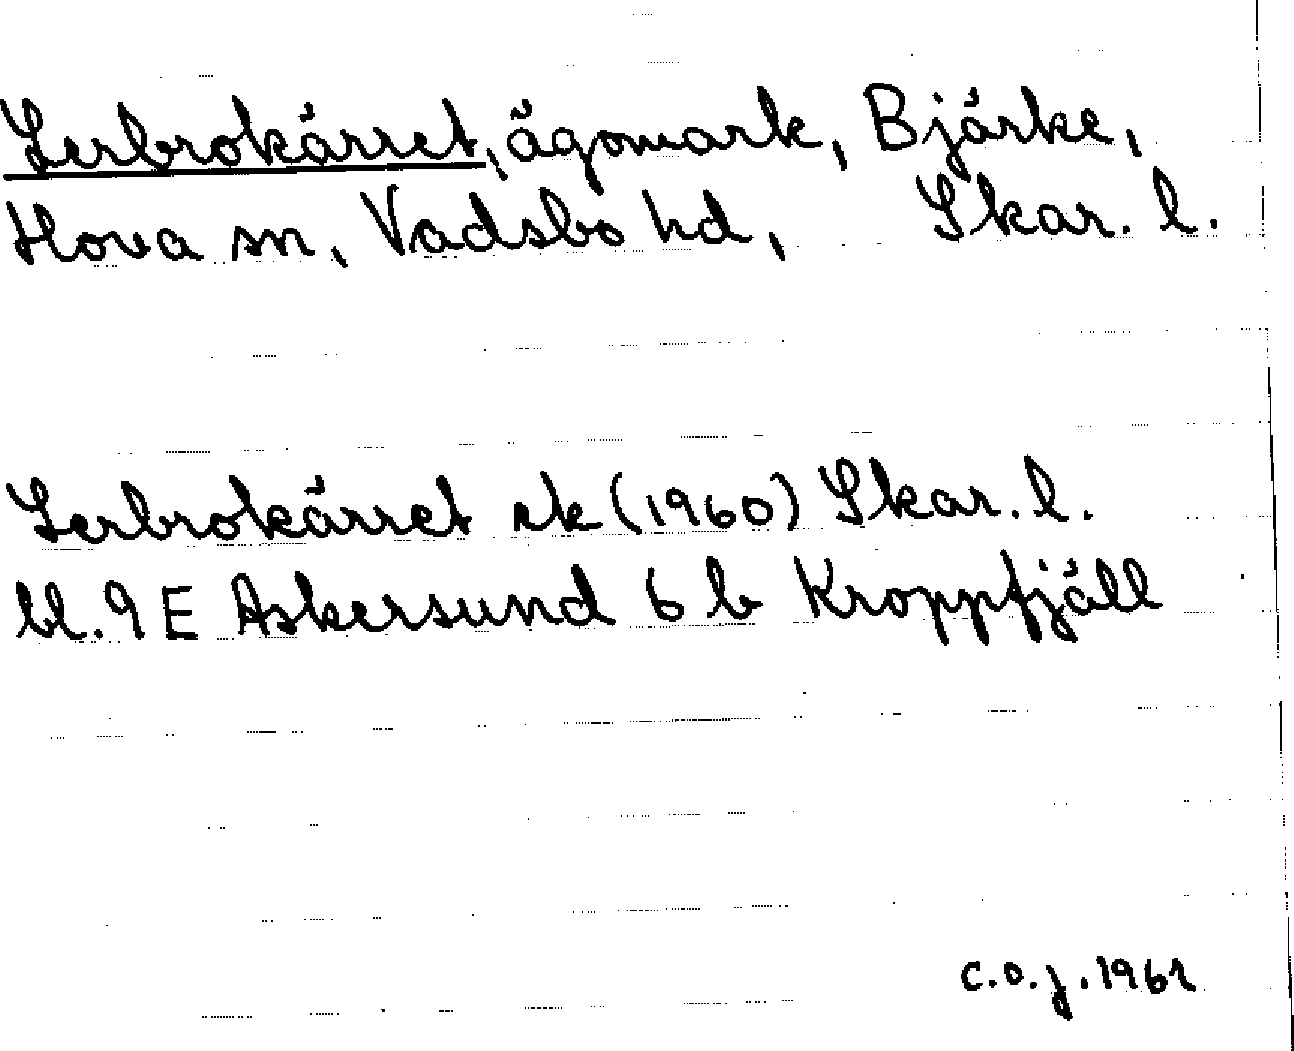 Lerbrokärret, ägomark, Bjärke,
Hova sn, Vadsbo hd, Skar. l.
Lerbrokärret ek (1960) Skar. l.
bl. 9 E Askersund 6 b Kroppfjäll
C.O.J. 1961